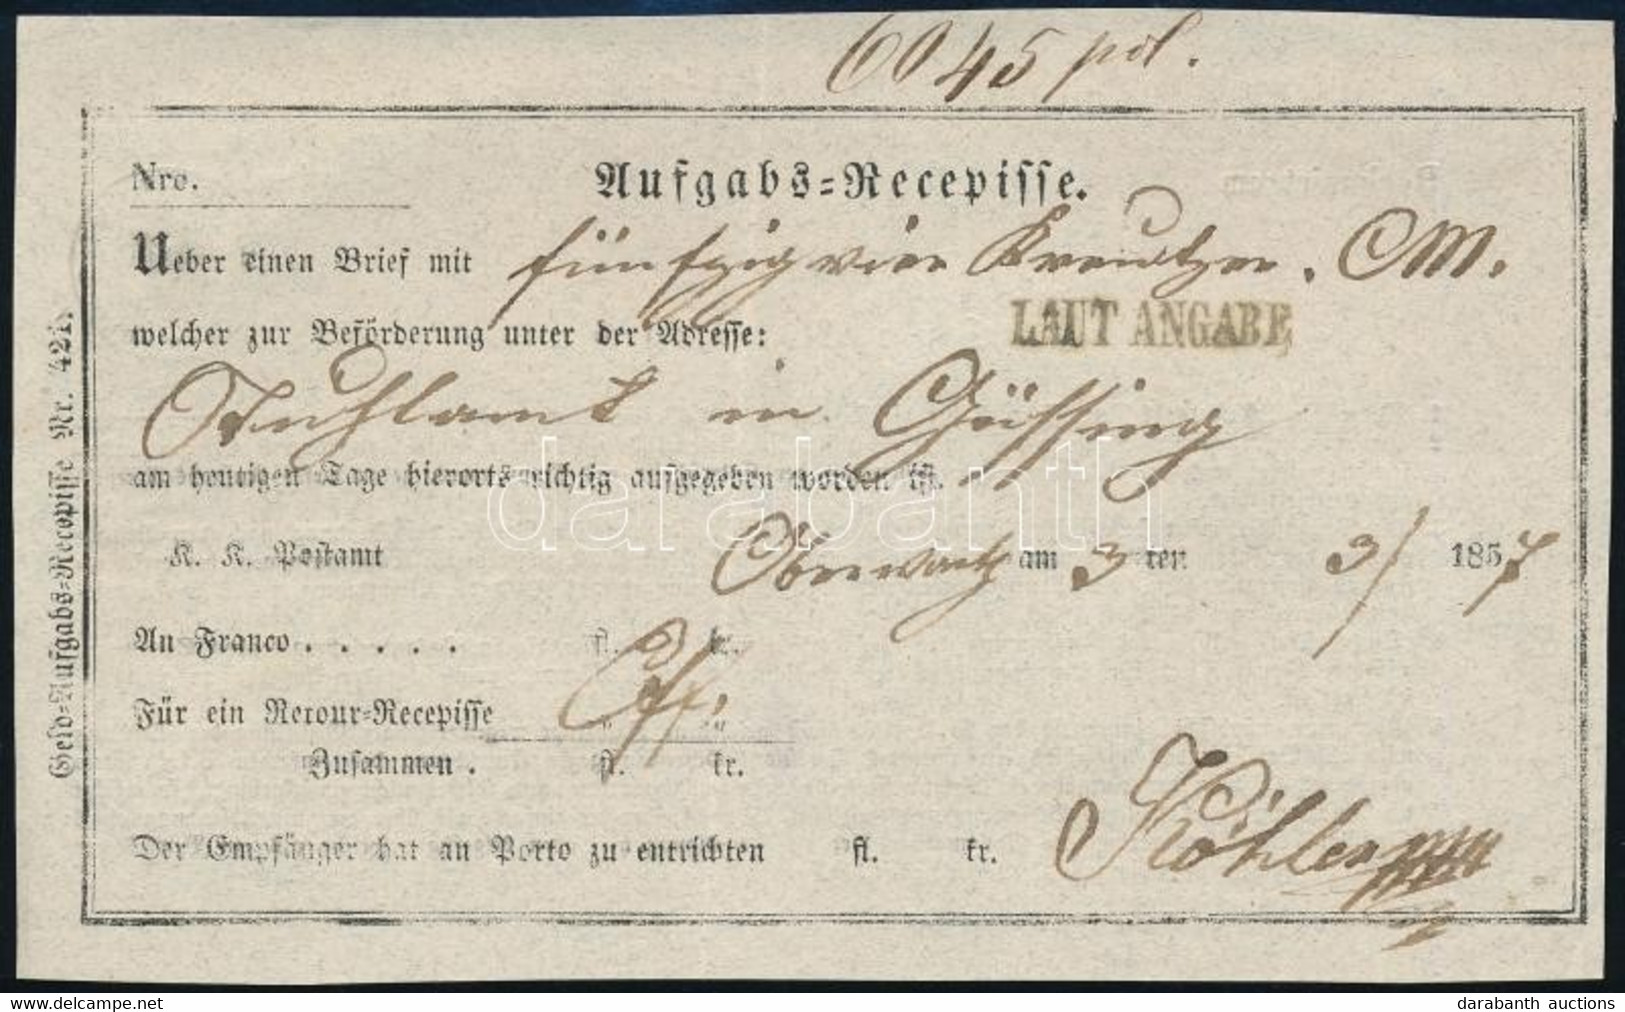 6045 pol.
Nro. Aufgabs=Recepisse.
Ueber einen Brief mit fünfzig vier Kreutzer. CM.
welcher zur Beförderung unter der Adresse: LAUT ANGABE
Stuhlamt in Güssing
am heutigen Tage hierorts richtig aufgegeben worden ist.
K. K. Postamt Oberwarth am 3 ten 3/ 1857
An Franco . . . . . fl. kr.
Für ein Retour=Recepisse
Zusammen . fl. kr.
Der Empfänger hat an Porto zu entrichten fl. kr. Köhler
Geld=Aufgabs=Recepisse Nr. 421.
darabanth
www.delcampe.net
darabanth auctions